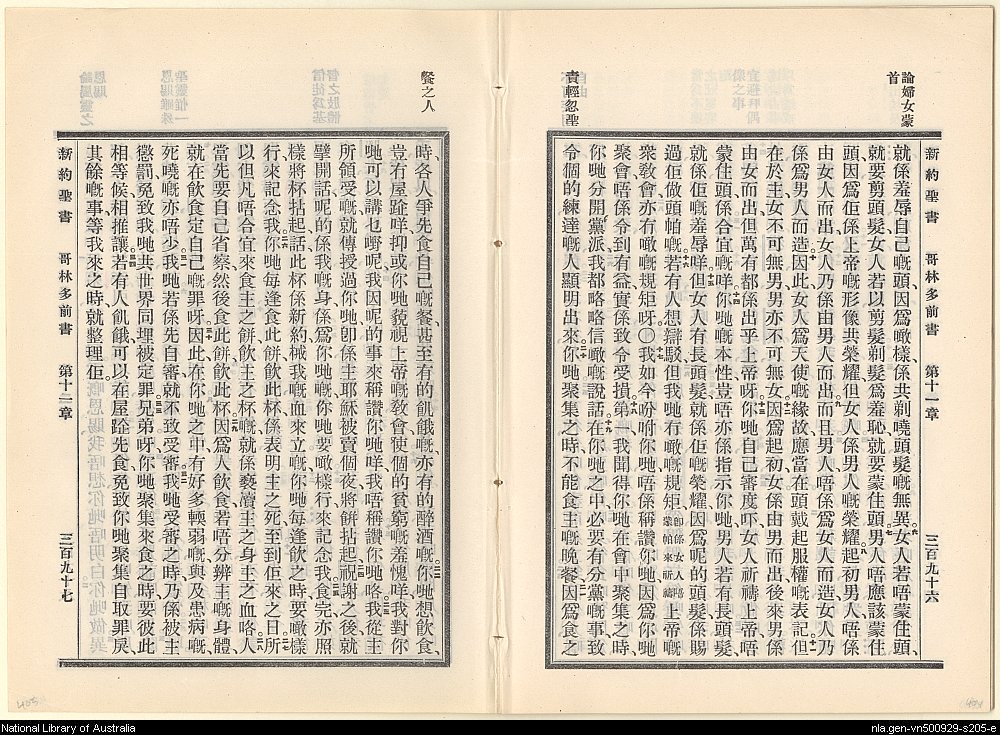 論婦女蒙
首
新約聖書 哥林多前書 第十一章 三百九十六
就係羞辱自己嘅頭因爲噉樣係共剃嘵頭髮嘅無異女人若唔蒙住頭
就要剪頭髮女人若以剪髮剃髮爲羞恥就要蒙住頭男人唔應該蒙住
頭因爲佢係上帝嘅形像共榮耀但女人係男人嘅榮耀起初男人唔係
由女人而出女人乃係由男人而出而且男人唔係爲女人而造女人乃
係爲男人而造因此女人爲天使嘅緣故應當在頭戴起服權嘅表記但
在於主女不可無男男亦不可無女因爲起初女係由男而出後來男男
由女而出但萬有都係出乎上帝呀你哋自己審度吓女人祈禱上帝唔
蒙住頭係合宜嘅咩你哋嘅本性豈唔亦係指示你哋男人若有長頭髮
就係佢嘅羞辱咩但女人有長頭髮就係佢嘅榮耀因爲呢的頭髮係賜
過佢做頭帕嘅若有人想辯駁但我哋冇噉嘅規矩卽係女人唔蒙帕來祈禱上帝嘅
衆教會亦冇噉嘅規矩呀〇我如今吩咐你哋唔係稱讚你哋因爲你哋
聚會唔係令到有益實係致令受損第一我聞得你哋在會中聚集之時
你哋分開黨派我都略略信嘅說話在你哋之中必要有分黨嘅事致
令個的練達嘅人顯明出來你哋聚集之時不能食主嘅晚餐因爲食之
責輕忽聖
餐之人
時各人爭先食自己嘅餐甚至有的飢餓嘅亦有的醉酒嘅你哋想飲食
豈冇屋𨂽咩抑或你哋藐視上帝嘅教會使個的貧窮嘅羞愧咩我對你
哋可以講乜嘢呢我因呢的事來稱讚你哋咩我唔稱讚你哋咯我從主
所領受嘅就傳授過你哋卽係主耶穌被賣個夜將餅拈起祝謝之後就
擘開話呢的係我嘅身係爲你哋嘅你哋要噉樣行來記念我食完亦照
樣將杯拈起話此杯係新約椷我嘅血來立嘅你哋每逢飲之時要噉樣
行來記念我你哋每逢食此餅飲此杯係表明主之死至到佢來之日所
以但凡唔合宜來食主之餅飲主之杯嘅就係褻瀆主之身主之血咯人
當先要自己省察然後食此餅飲此杯因爲人飲食若唔分辨主嘅身體
就在飲食定自己嘅罪呀因此在你哋之中有好多輭弱嘅與及患病嘅
死嘵嘅亦唔少我哋若係先自審就不致受審我哋受審之時乃係被主
懲罰免致我哋共世界同埋被定罪兄弟呀你哋聚集來食之時要彼此
相等候相推讓若有人飢餓可以在屋𨂽先食免致你哋聚集自取罪戾
其餘嘅事等我來之時就整理佢
新約聖書 哥林多前書 第十二章 三百九十七
National Library of Australia
nla.gen-vn500929-s205-e